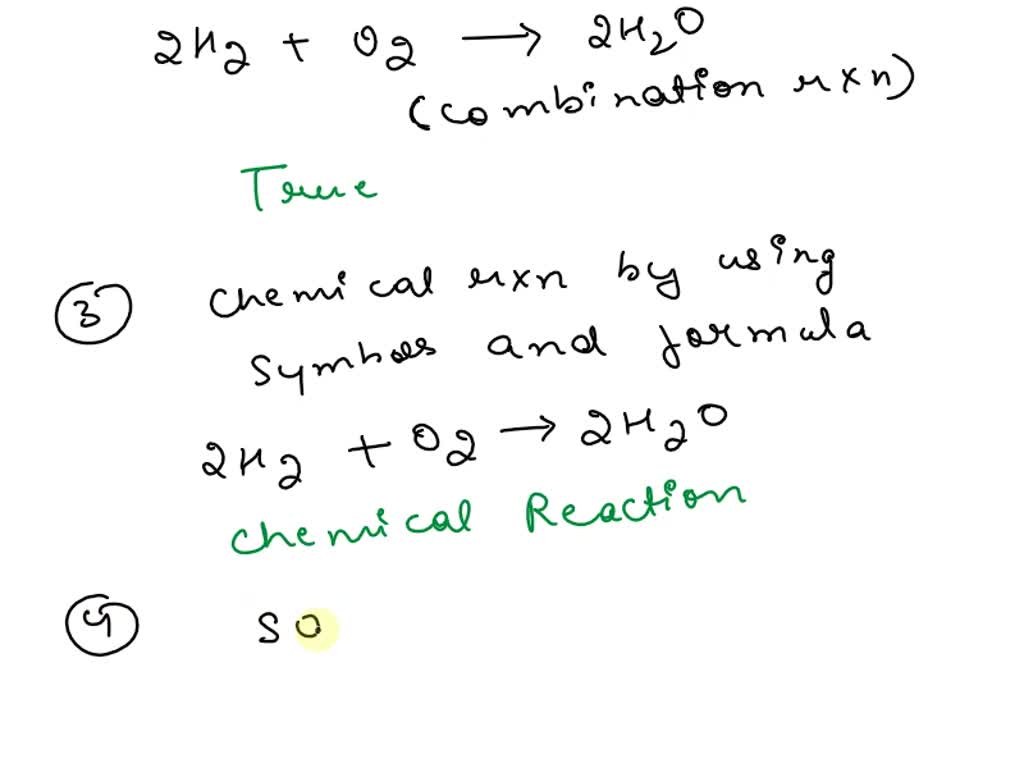 2H₂ + O₂ → 2H₂O
(combination rxn)
True
③ chemical rxn by using
symbols and formula
2H₂ + O₂ → 2H₂O
Chemical Reaction
④ SO